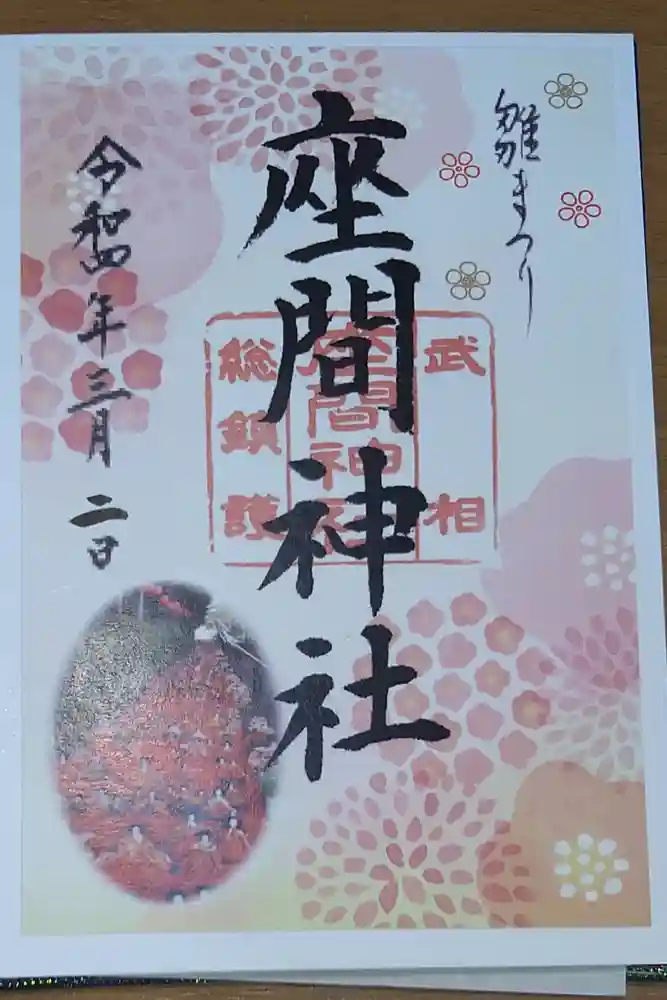 雛まつり
座間神社
武相
座間神社
総鎮護
令和四年三月二日